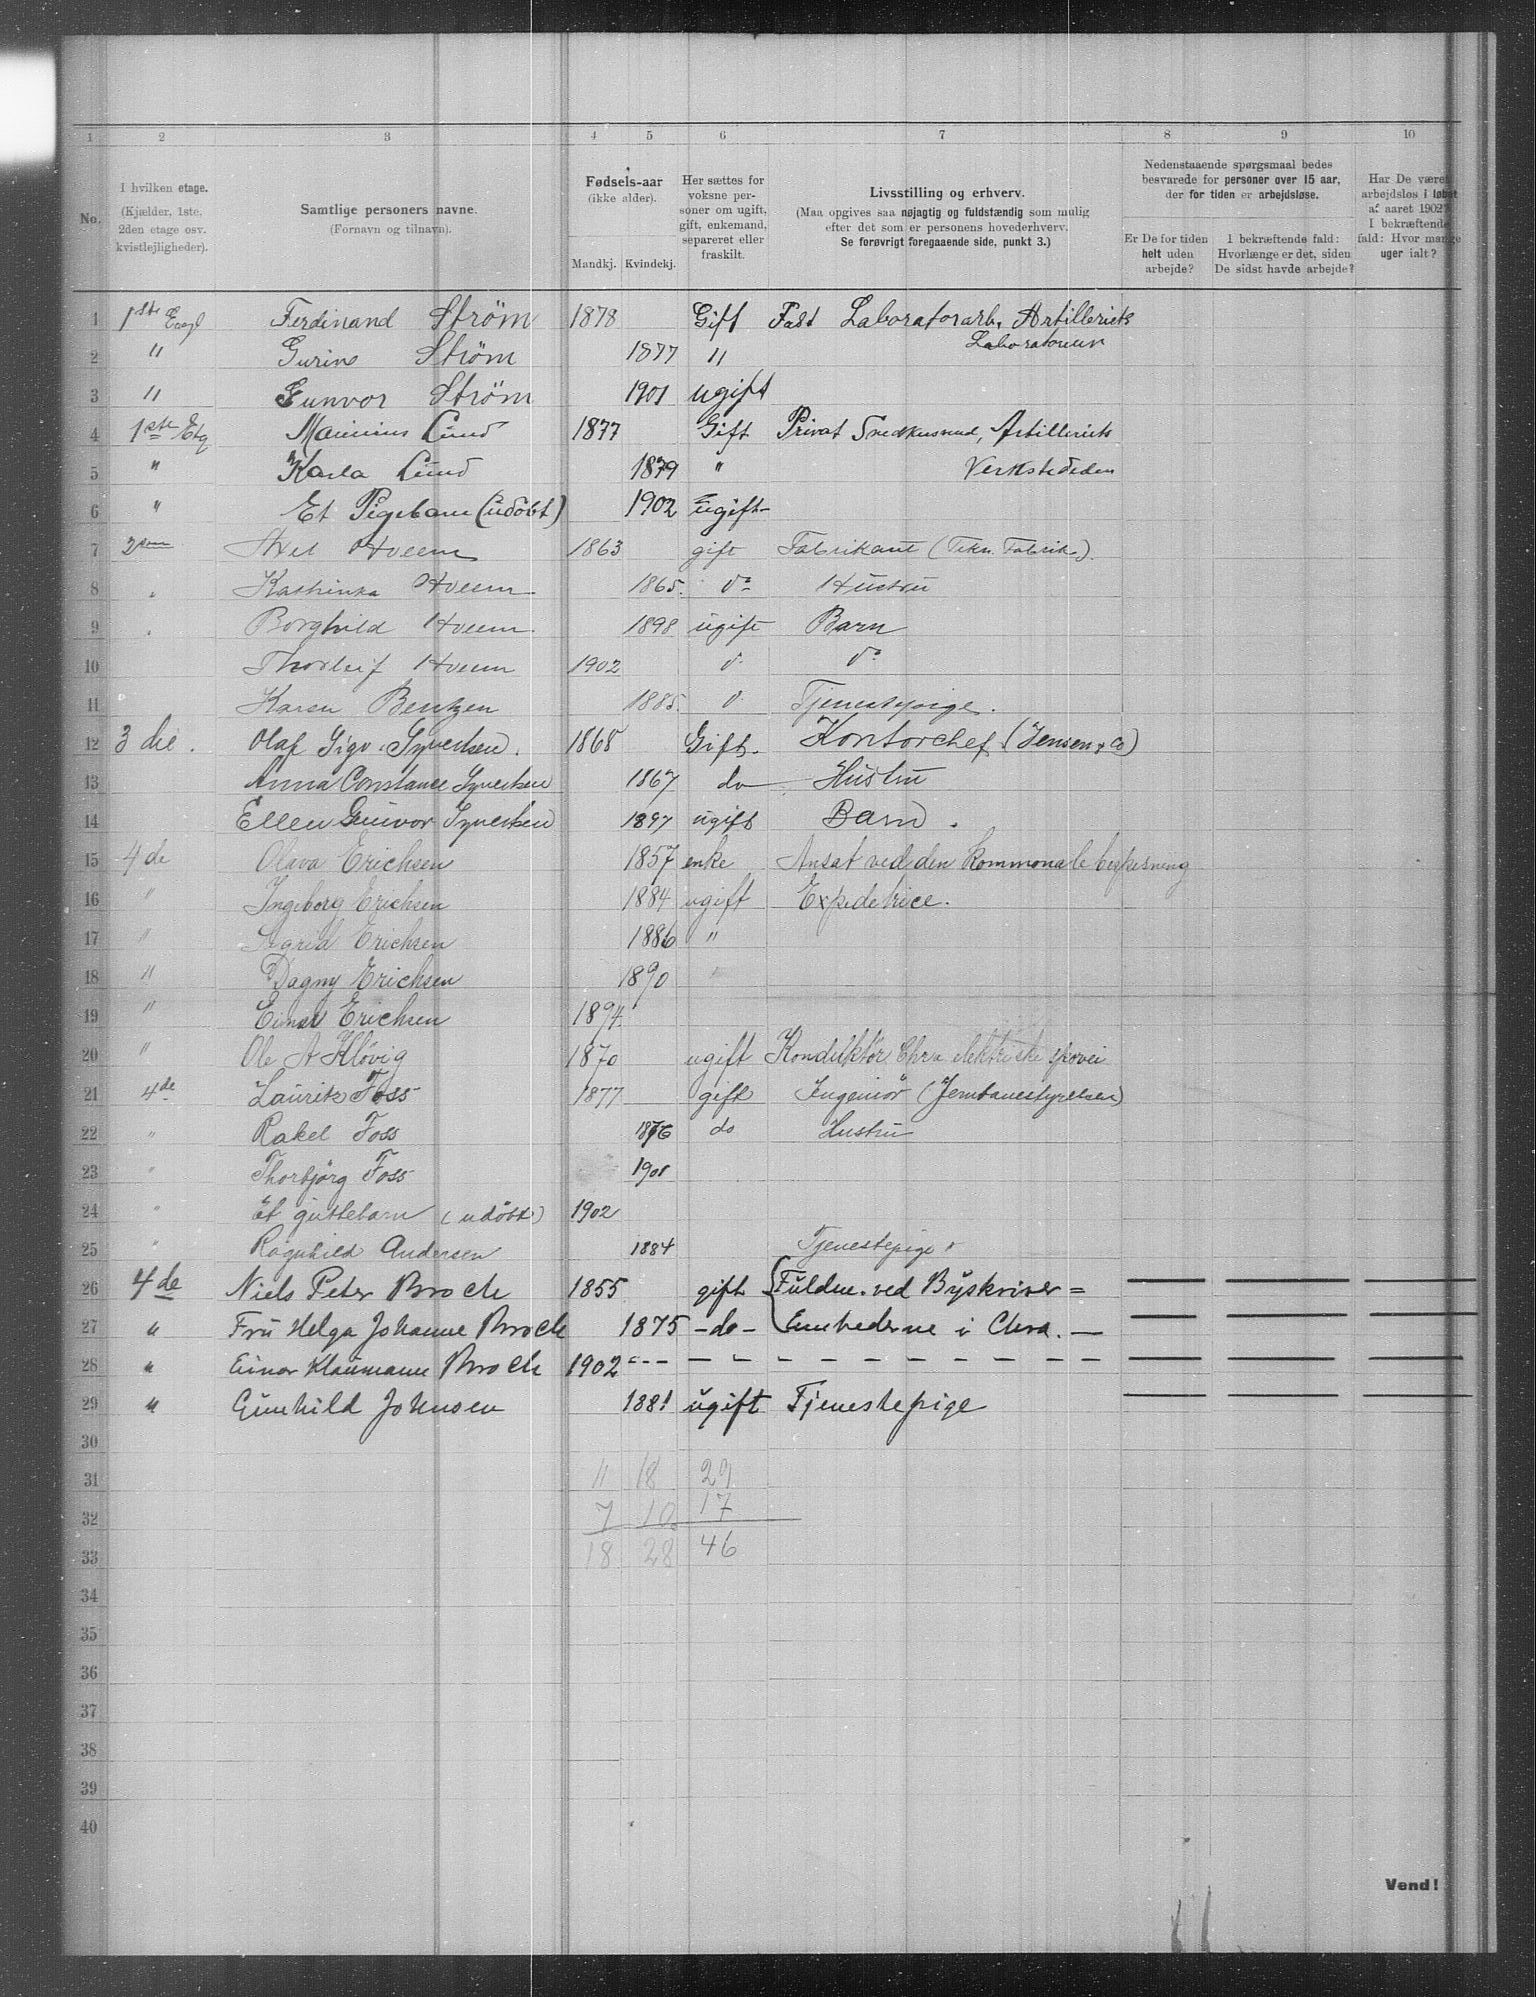 1 2 3 4 5 6 7 8 9 10
No.
I hvilken etage.
(Kjælder, 1ste,
2den etage osv.
kvistlejligheder).
Samtlige personers navne.
(Fornavn og tilnavn).
Fødsels-aar
(ikke alder).
Mandkj. Kvindekj.
Her sættes for
voksne per-
soner om ugift,
gift, enkemand,
separeret eller
fraskilt.
Livsstilling og erhverv.
(Maa opgives saa nøjagtig og fuldstændig som mulig
efter det som er personens hovederhverv.
Se forøvrigt foregaaende side, punkt 3.)
Nedenstaaende spørgsmaal bedes
besvarede for personer over 15 aar,
der for tiden er arbejdsløse.
Er De for tiden
helt uden
arbejde?
I bekræftende fald:
Hvorlænge er det, siden
De sidst havde arbejde?
Har De været
arbejdsløs i løbet
af aaret 1902?
I bekræftende
fald: Hvor mange
uger ialt?
1 1ste Ferdinand Ström 1878 Gift Fast Laboratorarb. Artilleriets
Laboratorium
2 " Ström 1877 "
3 " Gunvor Ström 1901 ugift
4 1ste Etg Lund 1877 Gift Privat Artilleriets
5 " Karla Lund 1879 " Verkstæder
6 " Et Pigebarn (udöbt) 1902 ugift
7 2den Axel Hveem 1863 gift Fabrikant (Tekn. Fabrik.)
8 Kathinka Hveem 1865. do Hustru
9 Borghild Hveem 1898 ugift Barn
10 Thorleif Hveem 1902 do
11 Karen Bentzen 1885. Tjenestepige.
12 3die. Olaf Sigv. Syvertsen. 1868 Gift. Kontorchef. (Jensen & Co)
13 Anna Constance Syvertsen 1867 do Hustru
14 Ellen Gunvor Syvertsen 1897 ugift Barn.
15 4de Olava Erichsen 1857 enke Ansat ved den kommunale bespisning
16 " Ingeborg Erichsen 1884 ugift Expeditrice.
17 " Sigrid Erichsen 1886 "
18 " Dagny Erichsen 1890 "
19 " Einar Erichsen 1894
20 " Ole A Klövig 1870 ugift Konduktör Chra elektriske sporvei
21 4de Lauritz Foss 1877 gift Ingeniör (Jernbanestyrelsen)
22 " Rakel Foss 1876 do Hustru
23 " Thorbjörg Foss 1901
24 " Et guttebarn (udöbt) 1902
25 " Ragnhild Andersen 1884 Tjenestepige
26 4de Niels Peter Broch 1855 gift {Fuldm. ved Byskriver =
27 " Fru Helga Johanne Broch 1875 -do- Embederne i Chra. —
28 " Einar Klaumann Broch 1902 - - - - - - - - -
29 " Gunhild Johnsen 1881 ugift Tjenestepige
30
31 11 18 29
32 7 10 17
33 18 28 46
34
35
36
37
38
39
40
Vend!